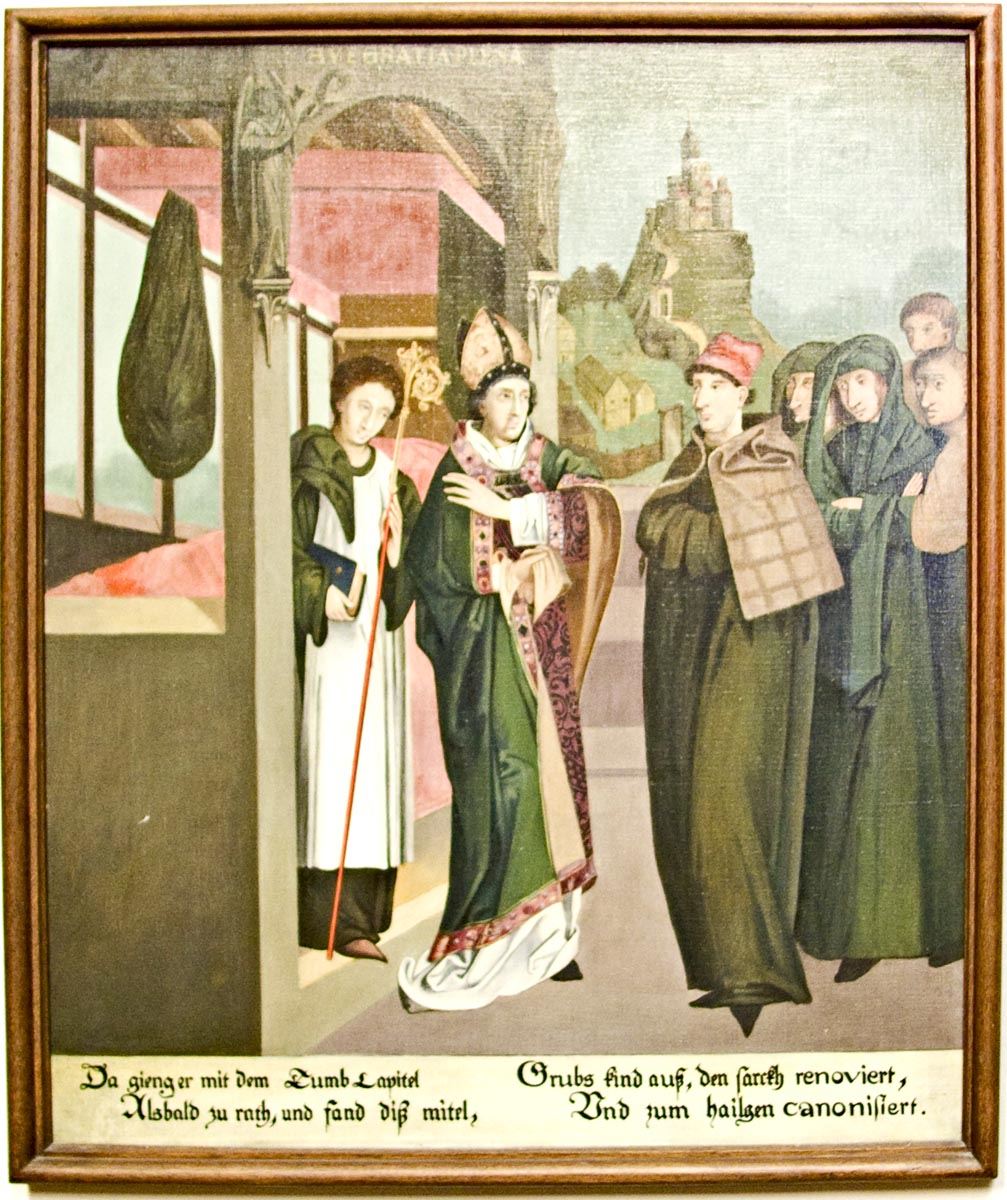 AVE GRATIA PLENA
Da gieng er mit dem Tumb Capitel
Alsbald zu rath, und fand diß mitel,
Grubs kind auß, den sarckh renoviert,
Vnd zum hailgen canonisiert.